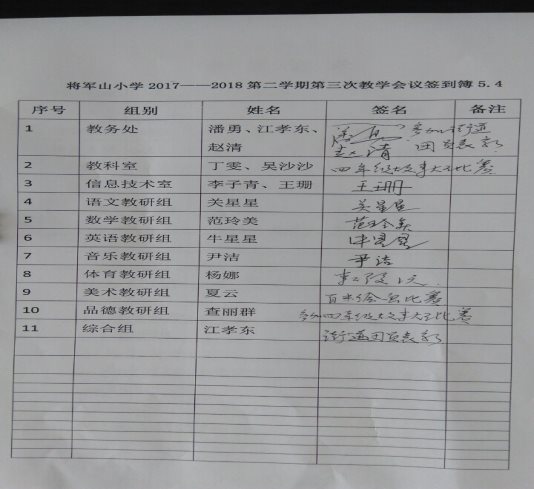 将军山小学2017——2018第二学期第三次教学会议签到簿5.4
序号 组别 姓名 签名 备注
1 教务处 潘勇、江孝东、 潘勇 参加街道
赵清 赵清 团员表彰
2 教科室 丁雯、吴沙沙 四年级大文章大比赛
3 信息技术室 李子青、王珊 王珊
4 语文教研组 关星星 关星星
5 数学教研组 范玲美 范玲美
6 英语教研组 牛星星 牛星星
7 音乐教研组 尹洁 尹洁
8 体育教研组 杨娜
9 美术教研组 夏云 百米绘画比赛
10 品德教研组 查丽群 参加四年级大文章大比赛
11 综合组 江孝东 街道团员表彰